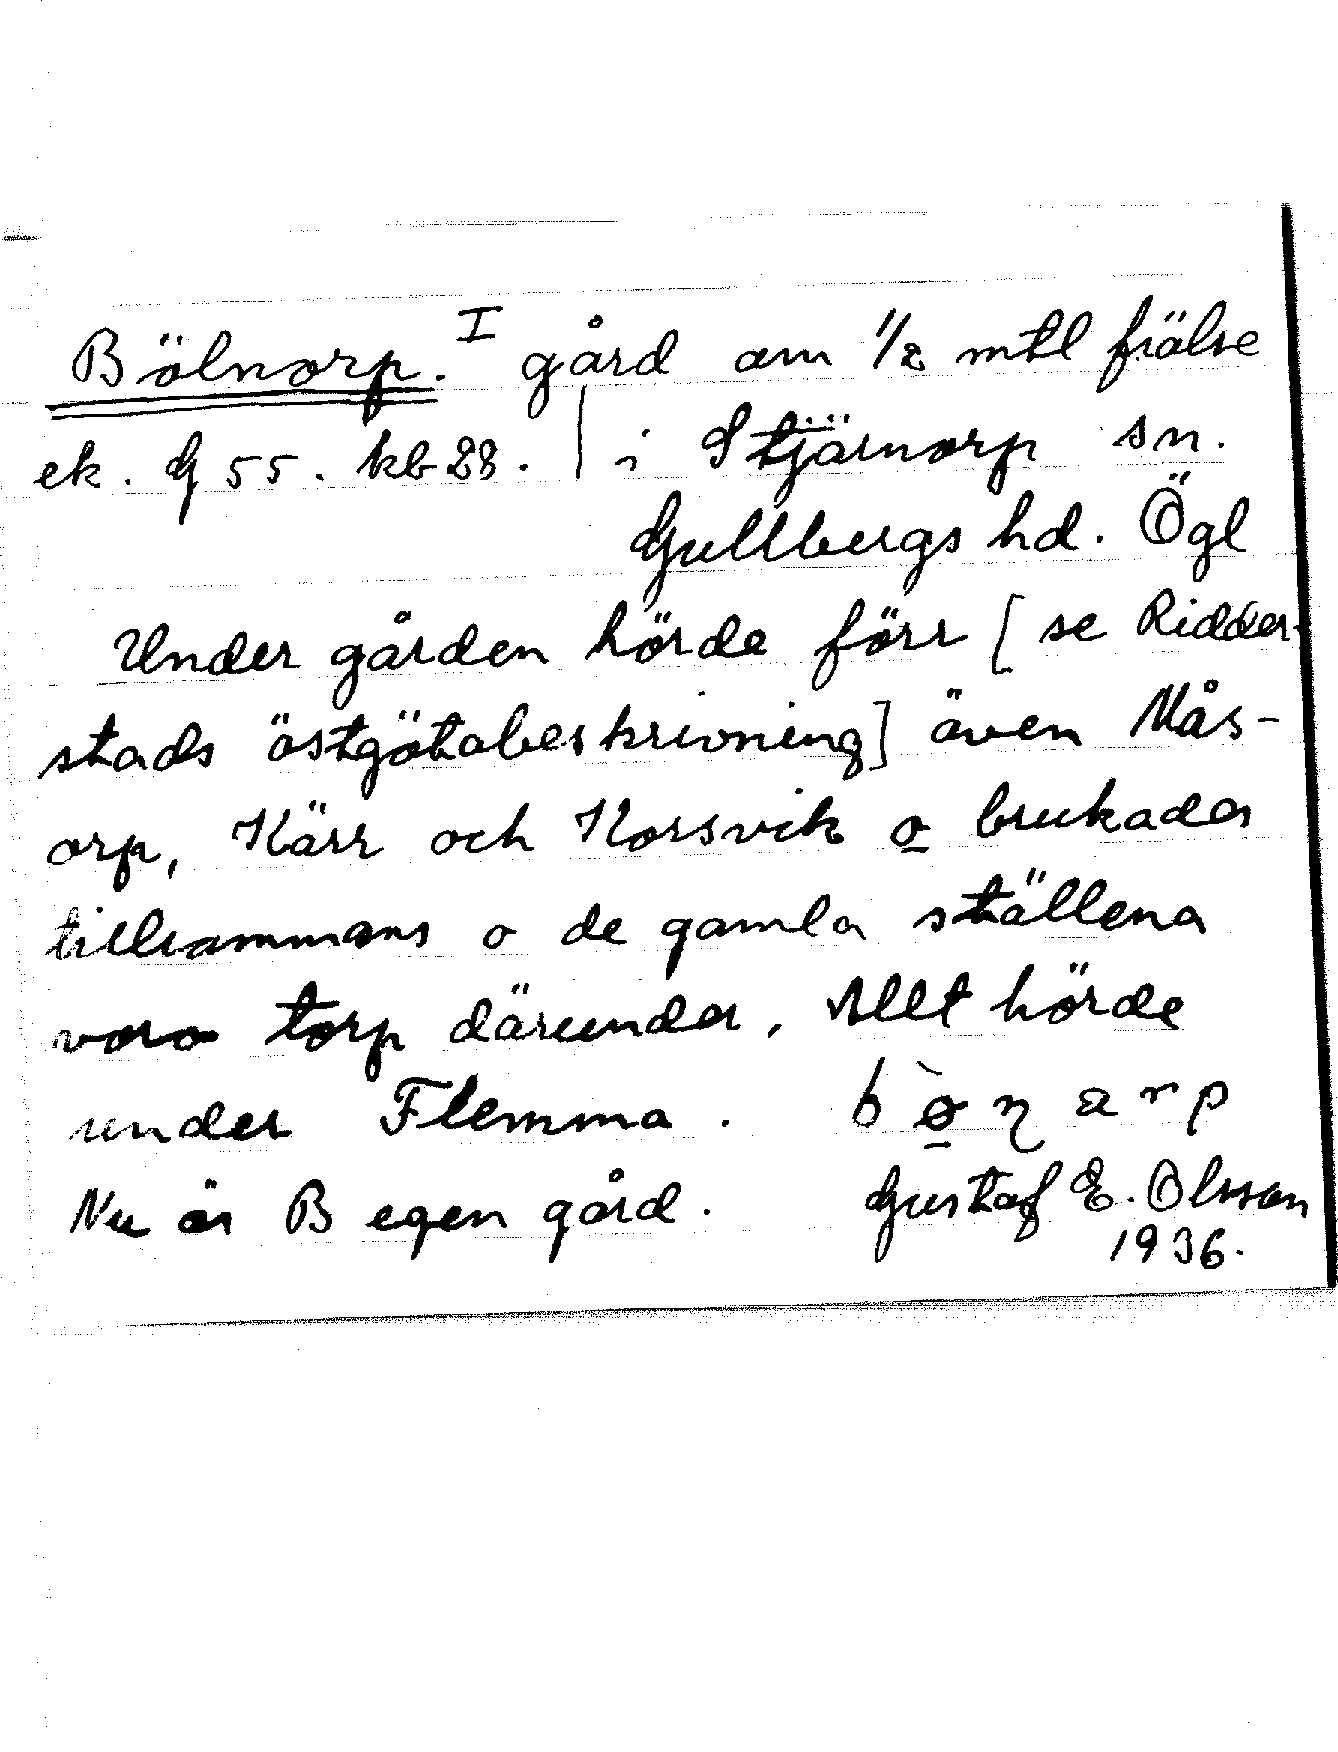 Bölnorp. I gård om 1/2 mtl frälse
ek. G 55. kb 28. | i Stjärnorp sn.
Gullbergs hd. Ögl
Under gården hörde förr [se Ridder-
stads östgötabeskrivning] även Mås-
orp, Kärr och Korsvik o brukades
tillsammans o de gamla ställena
voro torp därunder. Allt hörde
under Flemma.
Nu är B egen gård. Gustaf E. Olsson
1936.